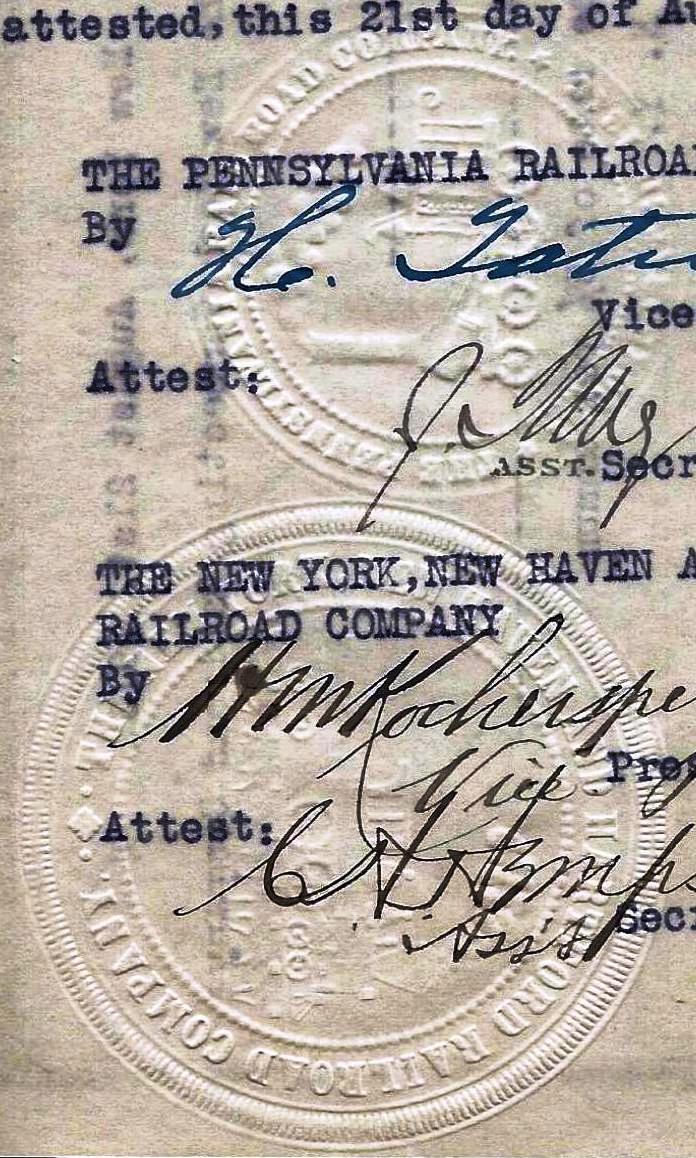 attested, this 21st day of
THE PENNSYLVANIA RAILROA
By H. Tatn
Vice
Attest:
J.
ASST. Secr
THE NEW YORK, NEW HAVEN A
RAILROAD COMPANY
By H M Kochersper
Vice Pres
Attest:
Ass't Sec
ROAD COMPANY
THE NEW YORK, NEW HAVEN & HARTFORD RAILROAD COMPANY